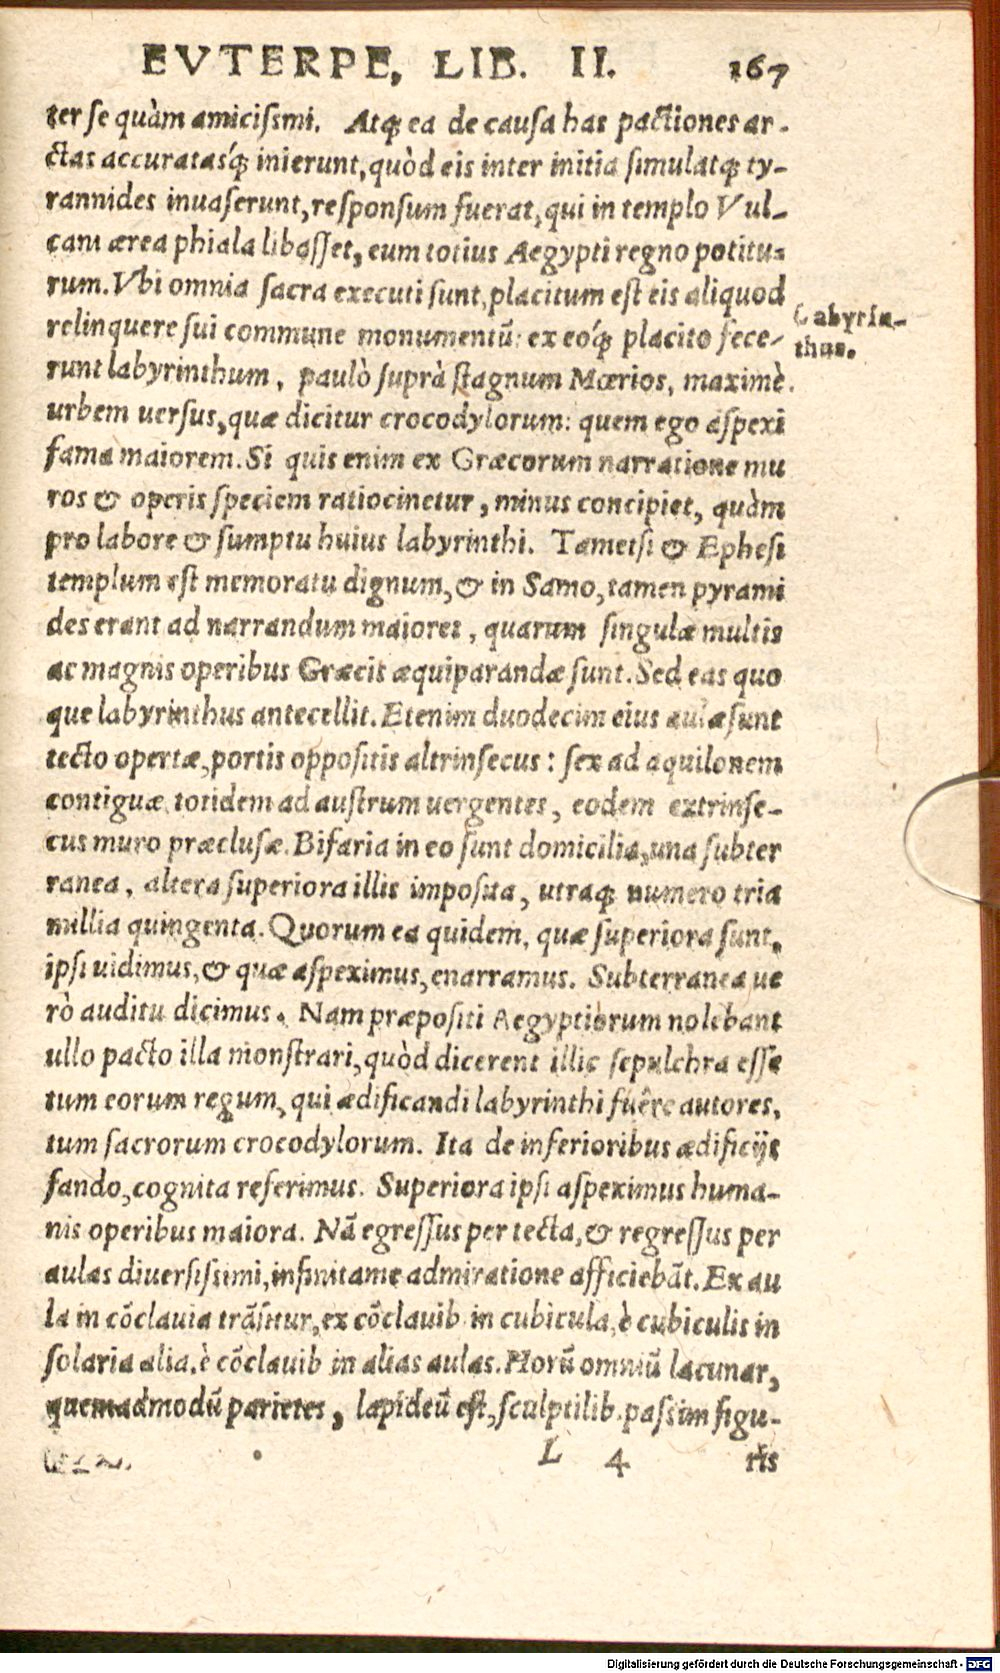 EVTERPE, LIB. II. 167
ter se quàm amicissimi. Atq; ea de causa has pactiones ar-
ctas accuratasq́; inierunt, quòd eis inter initia simulatq; ty-
rannides inuaserunt, responsum fuerat, qui in templo Vul-
cani ærea phiala libasset, eum totius Aegypti regno potitu-
rum. Vbi omnia sacra executi sunt, placitum est eis aliquod
relinquere sui commune monumentū: ex eoq́; placito fece-
Labyrin-
thus.
runt labyrinthum, paulò suprà stagnum Mœrios, maximè
urbem uersus, quæ dicitur crocodylorum: quem ego aspexi
fama maiorem. Si quis enim ex Græcorum narratione mu
ros & operis speciem ratiocinetur, minus concipiet, quàm
pro labore & sumptu huius labyrinthi. Tametsi & Ephesi
templum est memoratu dignum, & in Samo, tamen pyrami
des erant ad narrandum maiores, quarum singulæ multis
ac magnis operibus Græcis æquiparandæ sunt. Sed eas quo
que labyrinthus antecellit. Etenim duodecim eius aulæ sunt
tecto opertæ, portis oppositis altrinsecus: sex ad aquilonem
contiguæ totidem ad austrum uergentes, eodem extrinse-
cus muro præclusæ. Bifaria in eo sunt domicilia, una subter
ranea, altera superiora illis imposita, utraq; numero tria
millia quingenta. Quorum ea quidem, quæ superiora sunt,
ipsi uidimus, & quæ aspeximus, enarramus. Subterranea ue
rò auditu dicimus. Nam præpositi Aegyptiorum nolebant
ullo pacto illa monstrari, quòd dicerent illic sepulchra esse
tum eorum regum, qui ædificandi labyrinthi fuêre autores,
tum sacrorum crocodylorum. Ita de inferioribus ædificijs
fando, cognita referimus. Superiora ipsi aspeximus huma-
nis operibus maiora. Nā egressus per tecta, & regressus per
aulas diuersissimi, infinita me admiratione afficiebāt. Ex au
la in cōclauia trāsitur, ex cōclauib. in cubicula, è cubiculis in
solaria alia, è cōclauib in alias aulas. Horū omniū lacunar,
quemadmodū parietes, lapideū est, sculptilib. passim figu-
L 4 ris
Digitalisierung gefördert durch die Deutsche Forschungsgemeinschaft - DFG